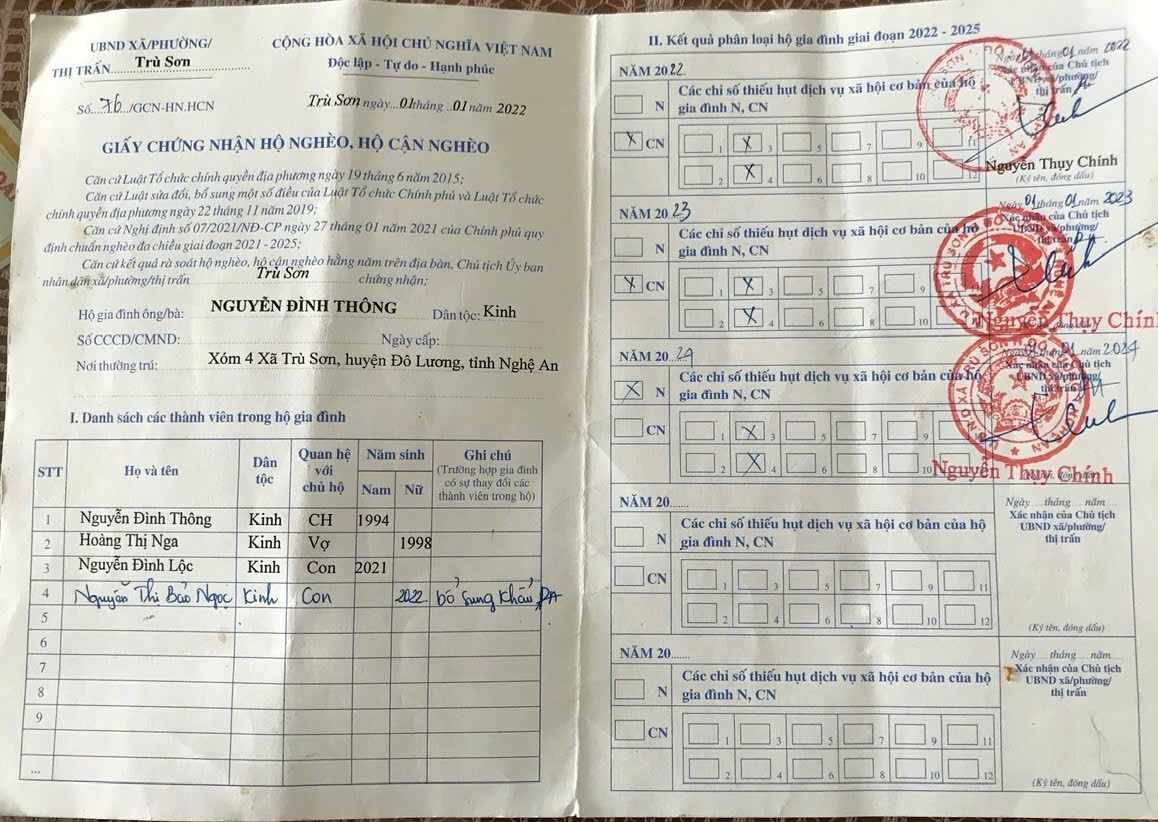 UBND XÃ/PHƯỜNG/
THỊ TRẤN Trù Sơn
CỘNG HÒA XÃ HỘI CHỦ NGHĨA VIỆT NAM
Độc lập - Tự do - Hạnh phúc
Số 76 /GCN-HN.HCN
Trù Sơn ngày 01 tháng 01 năm 2022
GIẤY CHỨNG NHẬN HỘ NGHÈO, HỘ CẬN NGHÈO
Căn cứ Luật Tổ chức chính quyền địa phương ngày 19 tháng 6 năm 2015;
Căn cứ Luật sửa đổi, bổ sung một số điều của Luật Tổ chức Chính phủ và Luật Tổ
chức chính quyền địa phương ngày 22 tháng 11 năm 2019;
Căn cứ Nghị định số 07/2021/NĐ-CP ngày 27 tháng 01 năm 2021 của Chính phủ quy
định chuẩn nghèo đa chiều giai đoạn 2021 - 2025;
Căn cứ kết quả rà soát hộ nghèo, hộ cận nghèo hằng năm trên địa bàn, Chủ tịch Ủy ban
nhân dân xã/phường/thị trấn Trù Sơn chứng nhận;
Hộ gia đình ông/bà: NGUYỄN ĐÌNH THÔNG Dân tộc: Kinh
Số CCCD/CMND: Ngày cấp:
Nơi thường trú: Xóm 4 Xã Trù Sơn, huyện Đô Lương, tỉnh Nghệ An
I. Danh sách các thành viên trong hộ gia đình
STT Họ và tên Dân tộc Quan hệ với chủ hộ Năm sinh Nam Nữ Ghi chú (Trường hợp gia đình có sự thay đổi các thành viên trong hộ)
1 Nguyễn Đình Thông Kinh CH 1994
2 Hoàng Thị Nga Kinh Vợ 1998
3 Nguyễn Đình Lộc Kinh Con 2021
4 Nguyễn Thị Bảo Ngọc Kinh Con 2022 bổ sung khẩu
5
6
7
8
9
...
II. Kết quả phân loại hộ gia đình giai đoạn 2022 - 2025
NĂM 2022
Các chỉ số thiếu hụt dịch vụ xã hội cơ bản của hộ
gia đình N, CN
N
X CN
1 X 3 5 7 9 11
2 X 4 6 8 10
Ngày tháng 01 năm 2022
Xác nhận của Chủ tịch
UBND xã/phường/
thị trấn
Nguyễn Thụy Chính
(Ký tên, đóng dấu)
NĂM 2023
Các chỉ số thiếu hụt dịch vụ xã hội cơ bản của hộ
gia đình N, CN
N
X CN
1 X 3 5 7 9
2 X 4 6 8 10
Ngày 01 tháng 01 năm 2023
Xác nhận của Chủ tịch
UBND xã/phường/
thị trấn
Nguyễn Thụy Chính
NĂM 2024
Các chỉ số thiếu hụt dịch vụ xã hội cơ bản của hộ
gia đình N, CN
X N
CN
1 X 3 5 7 9
2 X 4 6 8 10
01 năm 2024
Xác nhận của Chủ tịch
UBND xã/phường/
thị trấn
Nguyễn Thụy Chính
NĂM 20
Các chỉ số thiếu hụt dịch vụ xã hội cơ bản của hộ
gia đình N, CN
N
CN
1 3 5 7 9 11
2 4 6 8 10 12
Ngày tháng năm
Xác nhận của Chủ tịch
UBND xã/phường/
thị trấn
(Ký tên, đóng dấu)
NĂM 20
Các chỉ số thiếu hụt dịch vụ xã hội cơ bản của hộ
gia đình N, CN
N
CN
1 3 5 7 9 11
2 4 6 8 10 12
Ngày tháng năm
Xác nhận của Chủ tịch
UBND xã/phường/
thị trấn
(Ký tên, đóng dấu)